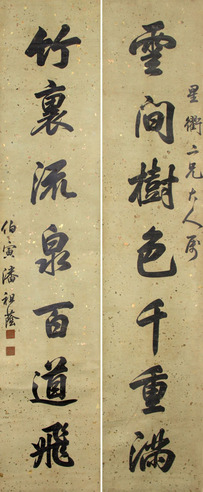 星衢二兄大人属
雲間樹色千重滿
竹裏流泉百道飛
伯寅潘祖蔭